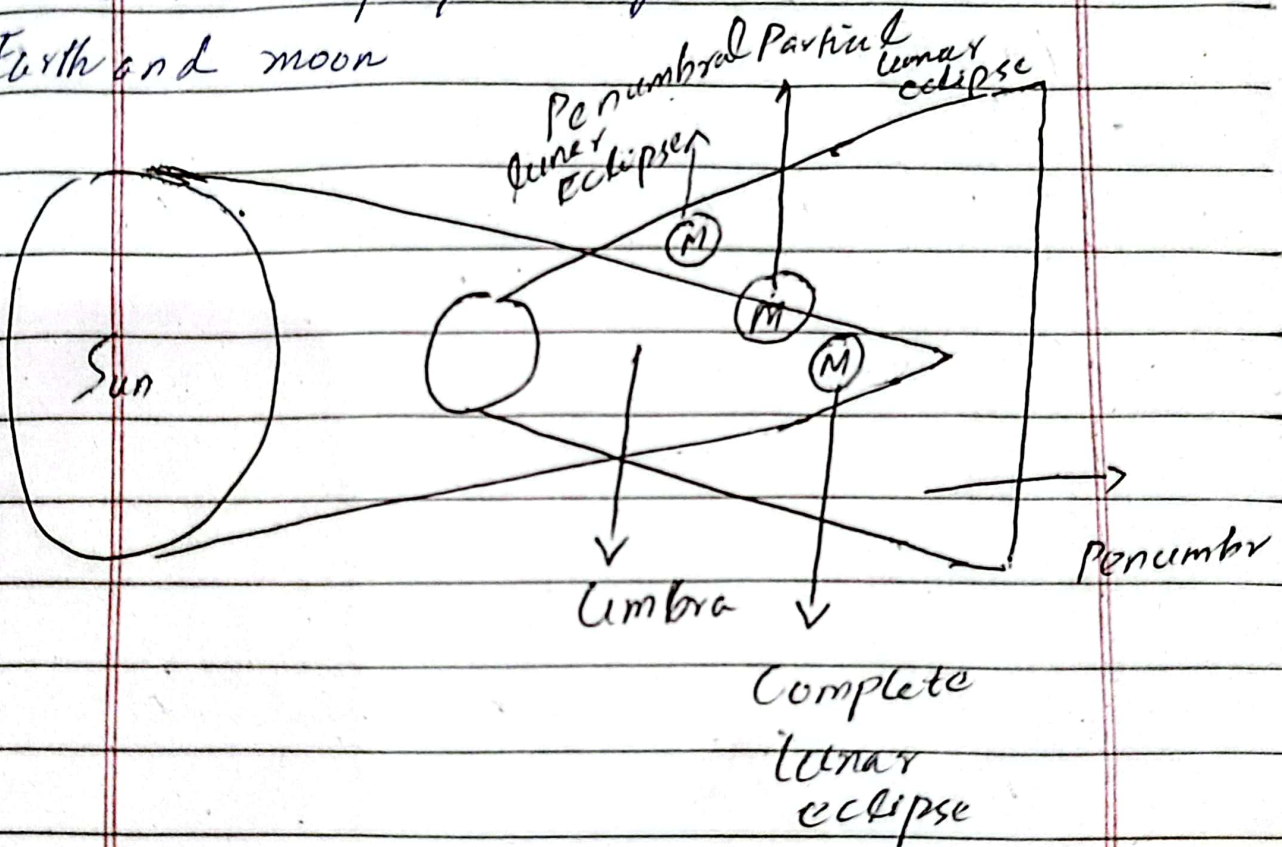 Earth and moon
Penumbral
lunar
eclipse
Partial
lunar
eclipse
M
M
M
Sun
Umbra
Penumbr
Complete
lunar
eclipse